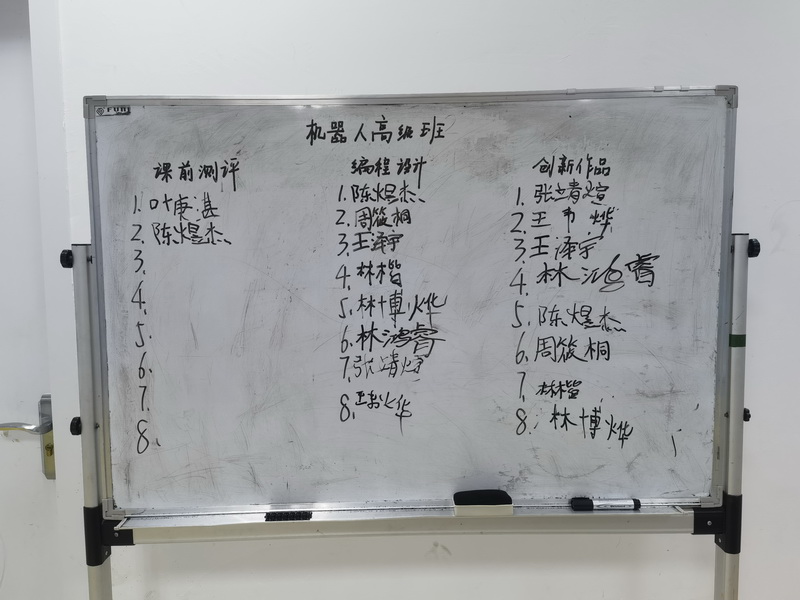 FUHI
机器人高级班
课前测评
1. 叶庚湛
2. 陈煜杰
3.
4.
5.
6.
7.
8.
编程设计
1. 陈煜杰
2. 周筱桐
3. 王泽宇
4. 林楷
5. 林博烨
6. 林鸿睿
7. 张靖煊
8. 王烨
创新作品
1. 张靖煊
2. 王 烨
3. 王泽宇
4. 林鸿睿
5. 陈煜杰
6. 周筱桐
7. 林楷
8. 林博烨